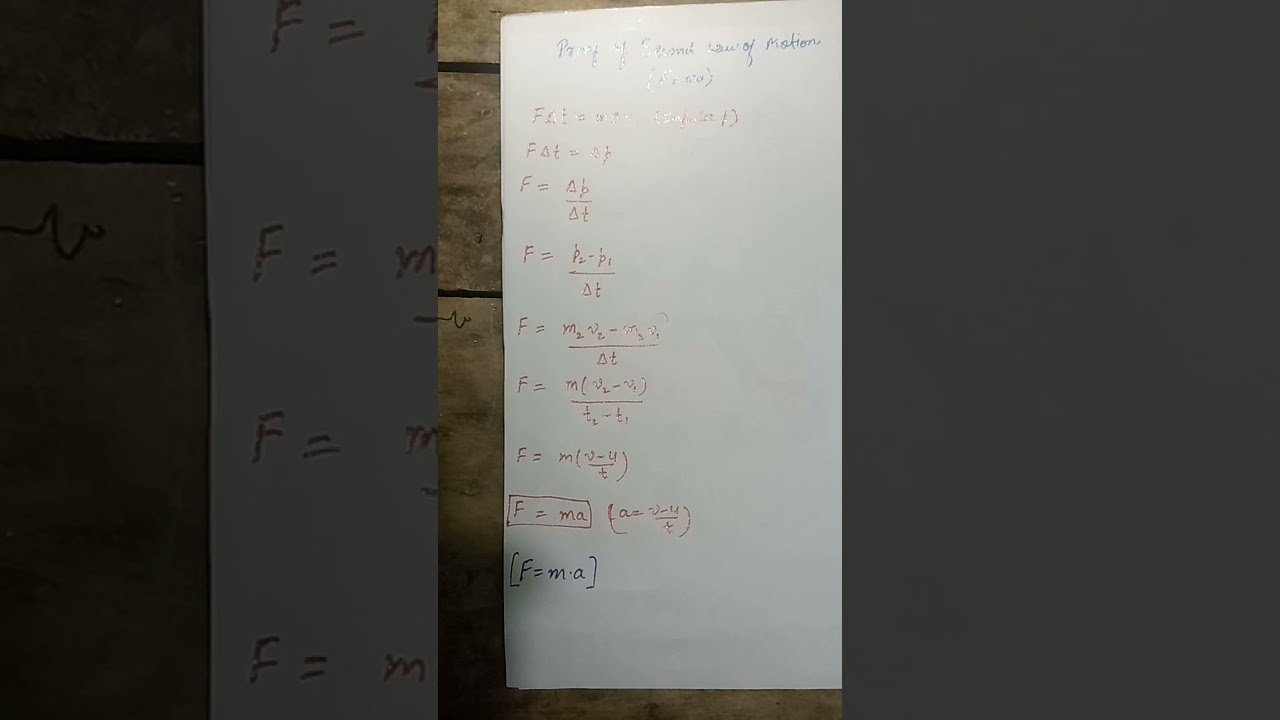 Proof of Second Law of Motion
(F = ma)
F Δt = m Δv (Impulse f)
F Δt = Δp
F = Δp / Δt
F = p₂ - p₁ / Δt
F = m₂ v₂ - m₂ v₁ / Δt
F = m( v₂ - v₁) / t₂ - t₁
F = m( v-u / t )
F = ma ( a = v-u / t )
[F = m·a]